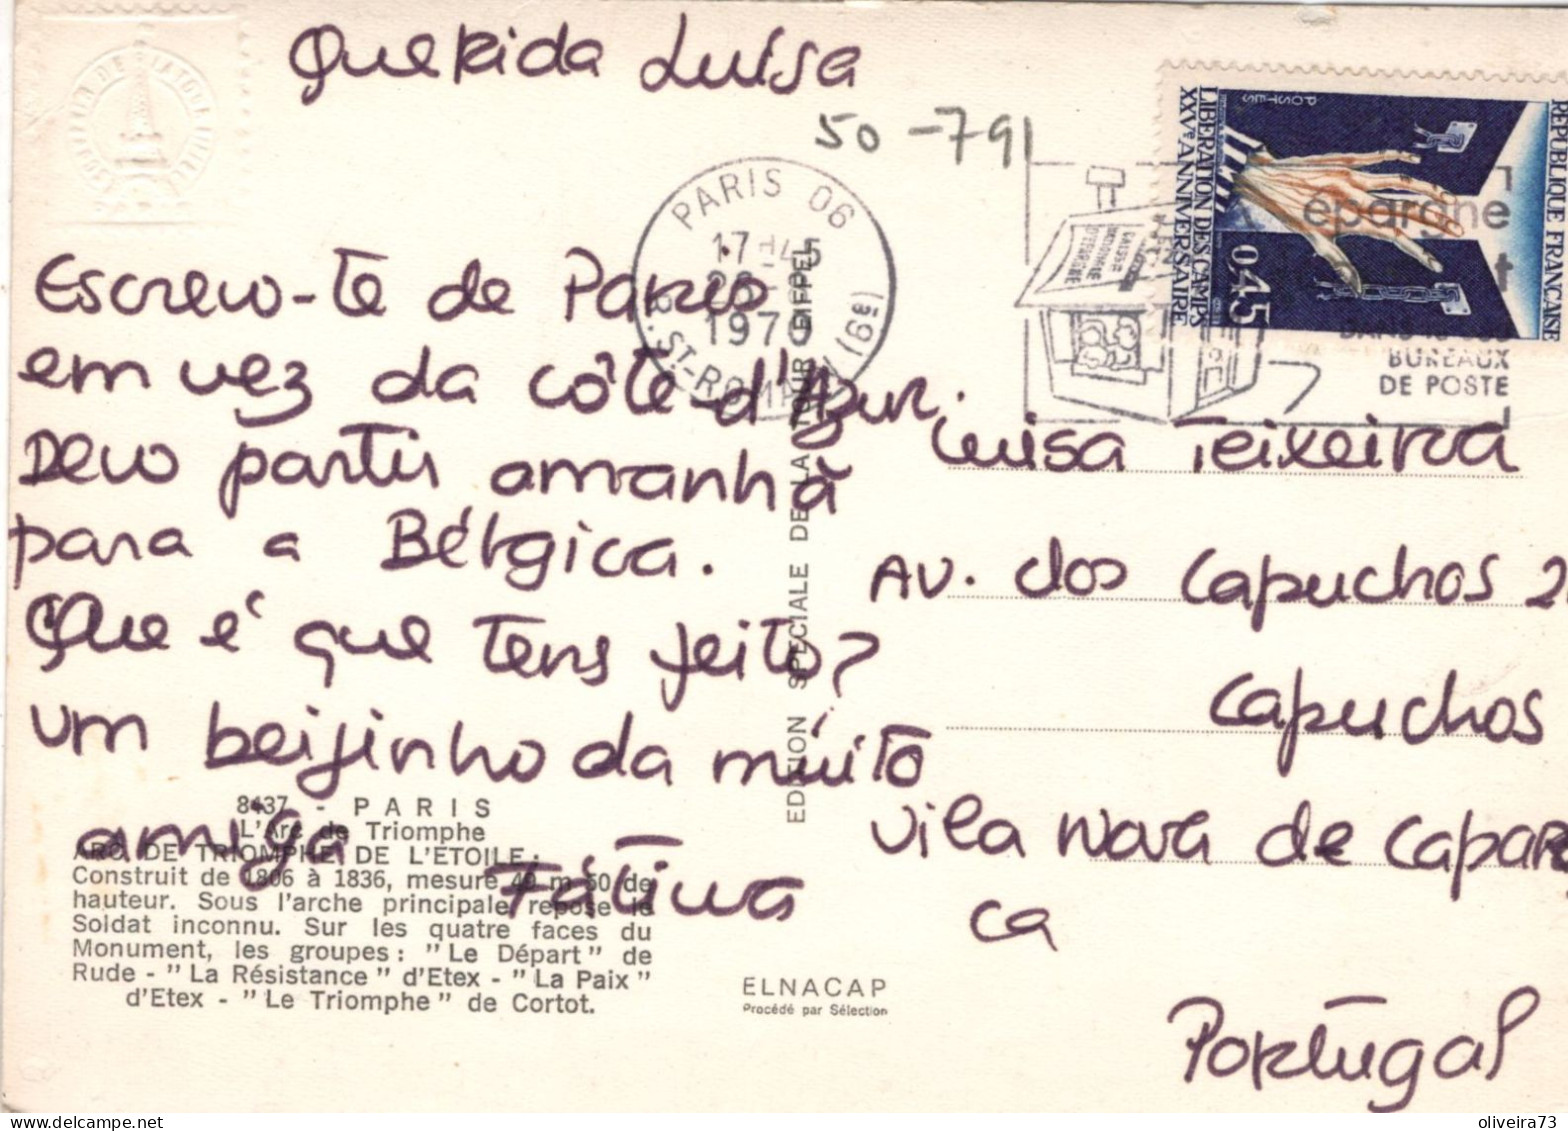 Querida Luísa
50-791
PARIS 06
17H45
1970
R. ST-ROMAIN (6e)
RÉPUBLIQUE FRANÇAISE
POSTES
LIBÉRATION DES CAMPS
XXVe ANNIVERSAIRE
0,45
épargne
BUREAUX
DE POSTE
Escrevo-te de Paris
em vez da côte-d'Azur.
Devo partir amanhã
para a Bélgica.
Que é que tens feito?
um beijinho da muito
amiga
Fátima
Luisa Teixeira
Av. dos Capuchos 2
Capuchos
Vila Nova de Capari
ca
Portugal
EDITION SPECIALE DE LA TOUR EIFFEL
8437 - PARIS
L'Arc de Triomphe
ARC DE TRIOMPHE DE L'ÉTOILE:
Construit de 1806 à 1836, mesure 49 m 50 de
hauteur. Sous l'arche principale repose le
Soldat inconnu. Sur les quatre faces du
Monument, les groupes : "Le Départ" de
Rude - "La Résistance" d'Etex - "La Paix"
d'Etex - "Le Triomphe" de Cortot.
ELNACAP
Procédé par Sélection
oliveira73